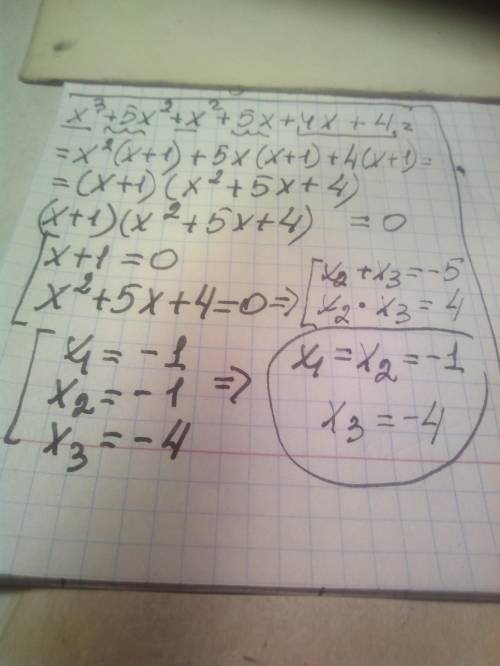 x³+5x²+x²+5x+4x+4=
=x²(x+1)+5x(x+1)+4(x+1)=
=(x+1)(x²+5x+4)
(x+1)(x²+5x+4) =0
[x+1=0
x²+5x+4=0⇒[x₂+x₃=-5
x₂·x₃=4
[x₁=-1
x₂=-1 ⇒ x₁=x₂=-1
x₃=-4 x₃=-4